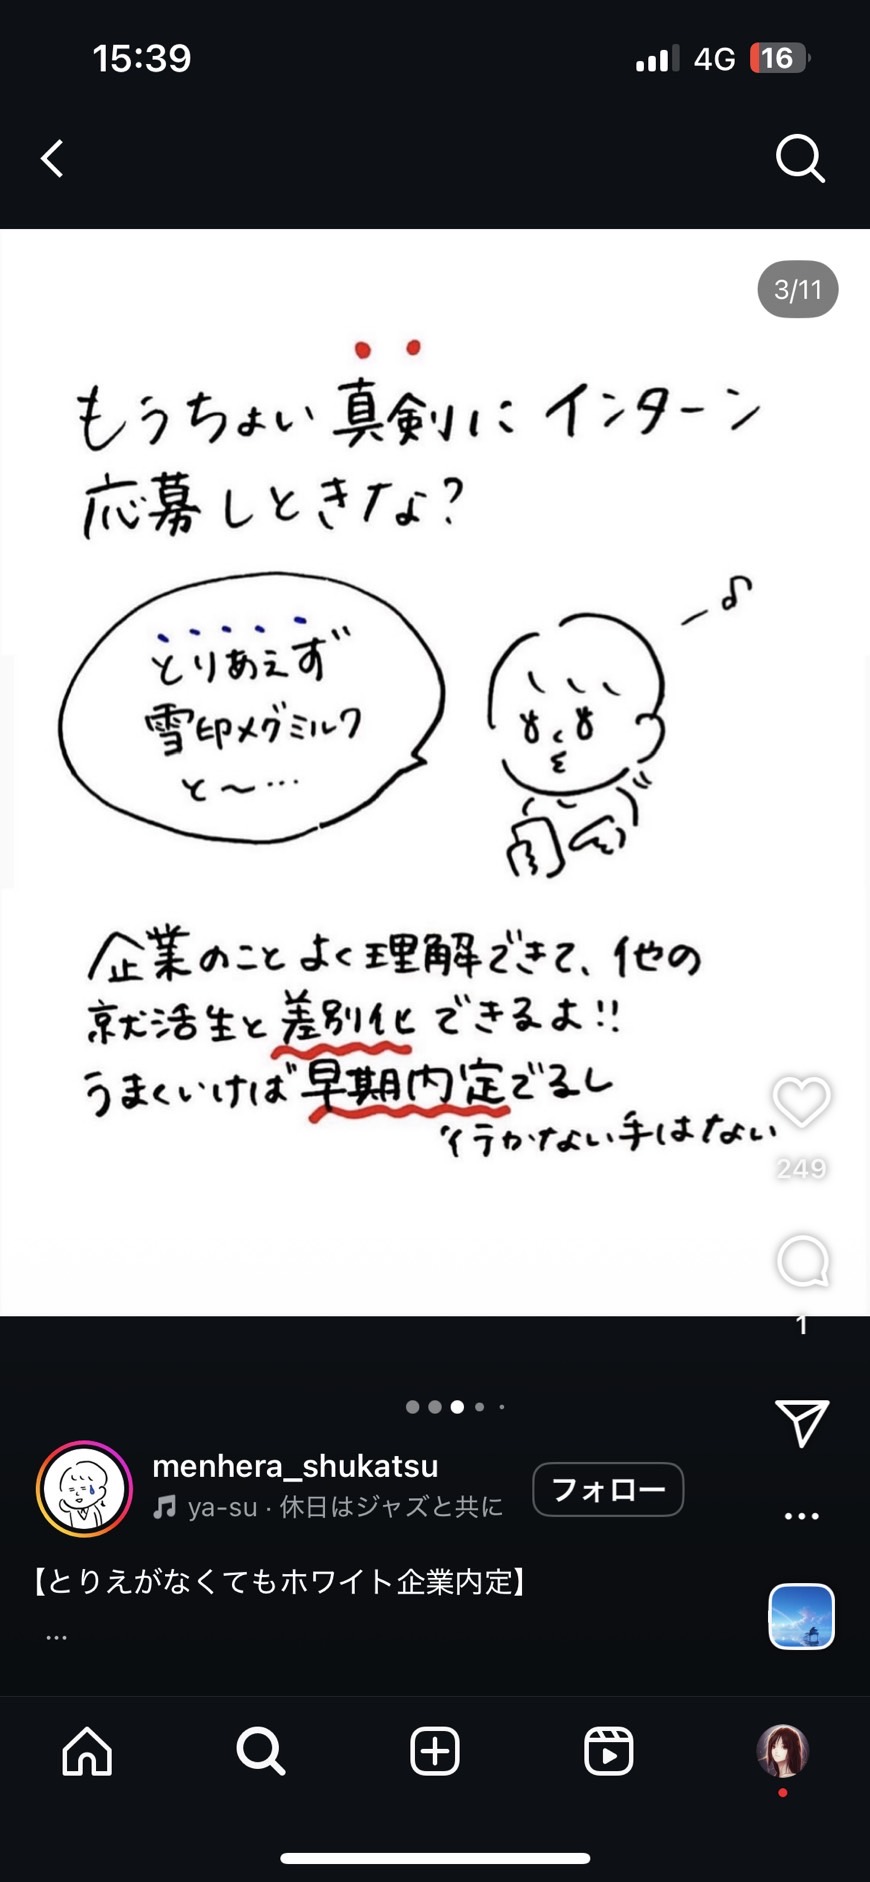 15:39
4G
16
3/11
もうちょい真剣にインターン
応募しときな?
とりあえず
雪印メグミルク
と〜…
企業のことよく理解できて、他の
就活生と差別化できるよ!!
うまくいけば早期内定でるし
行かない手はない
249
1
menhera_shukatsu
ya-su · 休日はジャズと共に
フォロー
【とりえがなくてもホワイト企業内定】
...